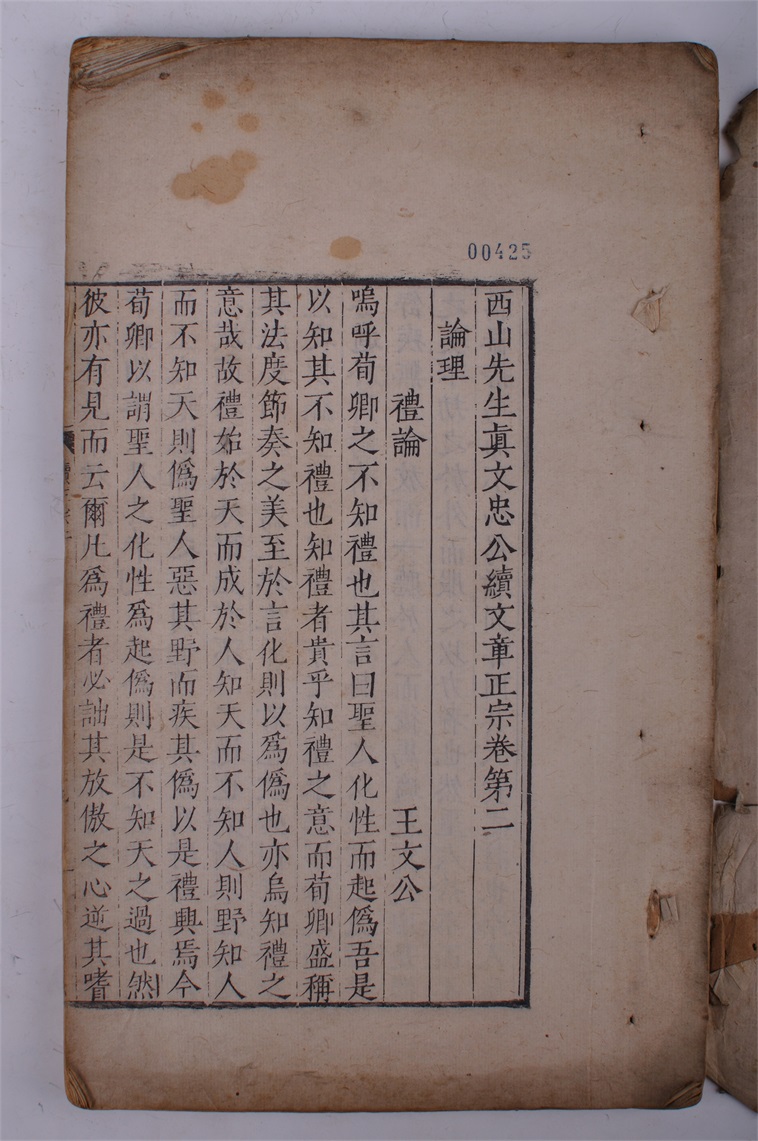 00425
西山先生眞文忠公續文章正宗卷第二
論理
禮論 王文公
嗚呼荀卿之不知禮也其言曰聖人化性而起僞吾是
以知其不知禮也知禮者貴乎知禮之意而荀卿盛稱
其法度節奏之美至於言化則以爲僞也亦烏知禮之
意哉故禮始於天而成於人知天而不知人則野知人
而不知天則僞聖人惡其野而疾其僞以是禮興焉今
荀卿以謂聖人之化性爲起僞則是不知天之過也然
彼亦有見而云爾凡爲禮者必詘其放傲之心逆其嗜